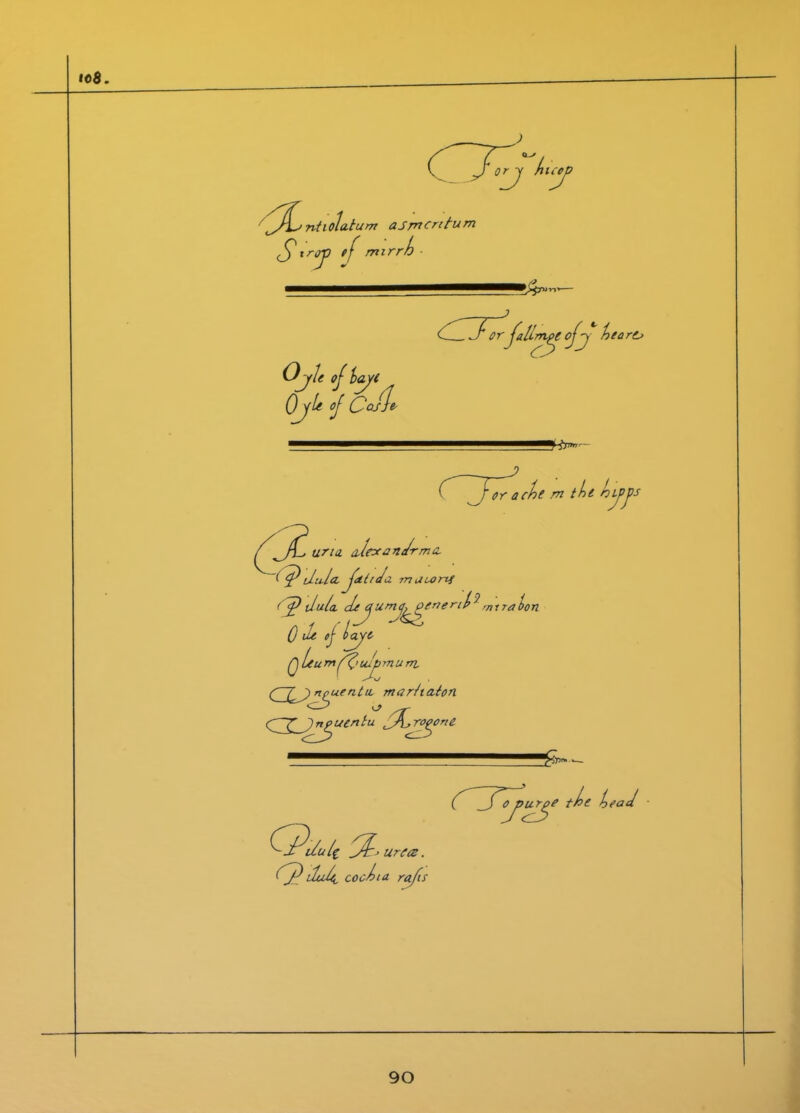 108.
For yͤ hicop
Antiolatum asmentum
Sirop of mirrh .
For fallinge of yͤ heare
Oyle of baye
Oyle of Coste
For ache in the hipps
Auria alexandrina
Pilula fatida maioris
Oile of baye
Oleum Vulpinum
Unguentu marhiaton
Unguentu Arogone
To purge the head
Pilule Aureæ.
Pilule cochia rasis
90